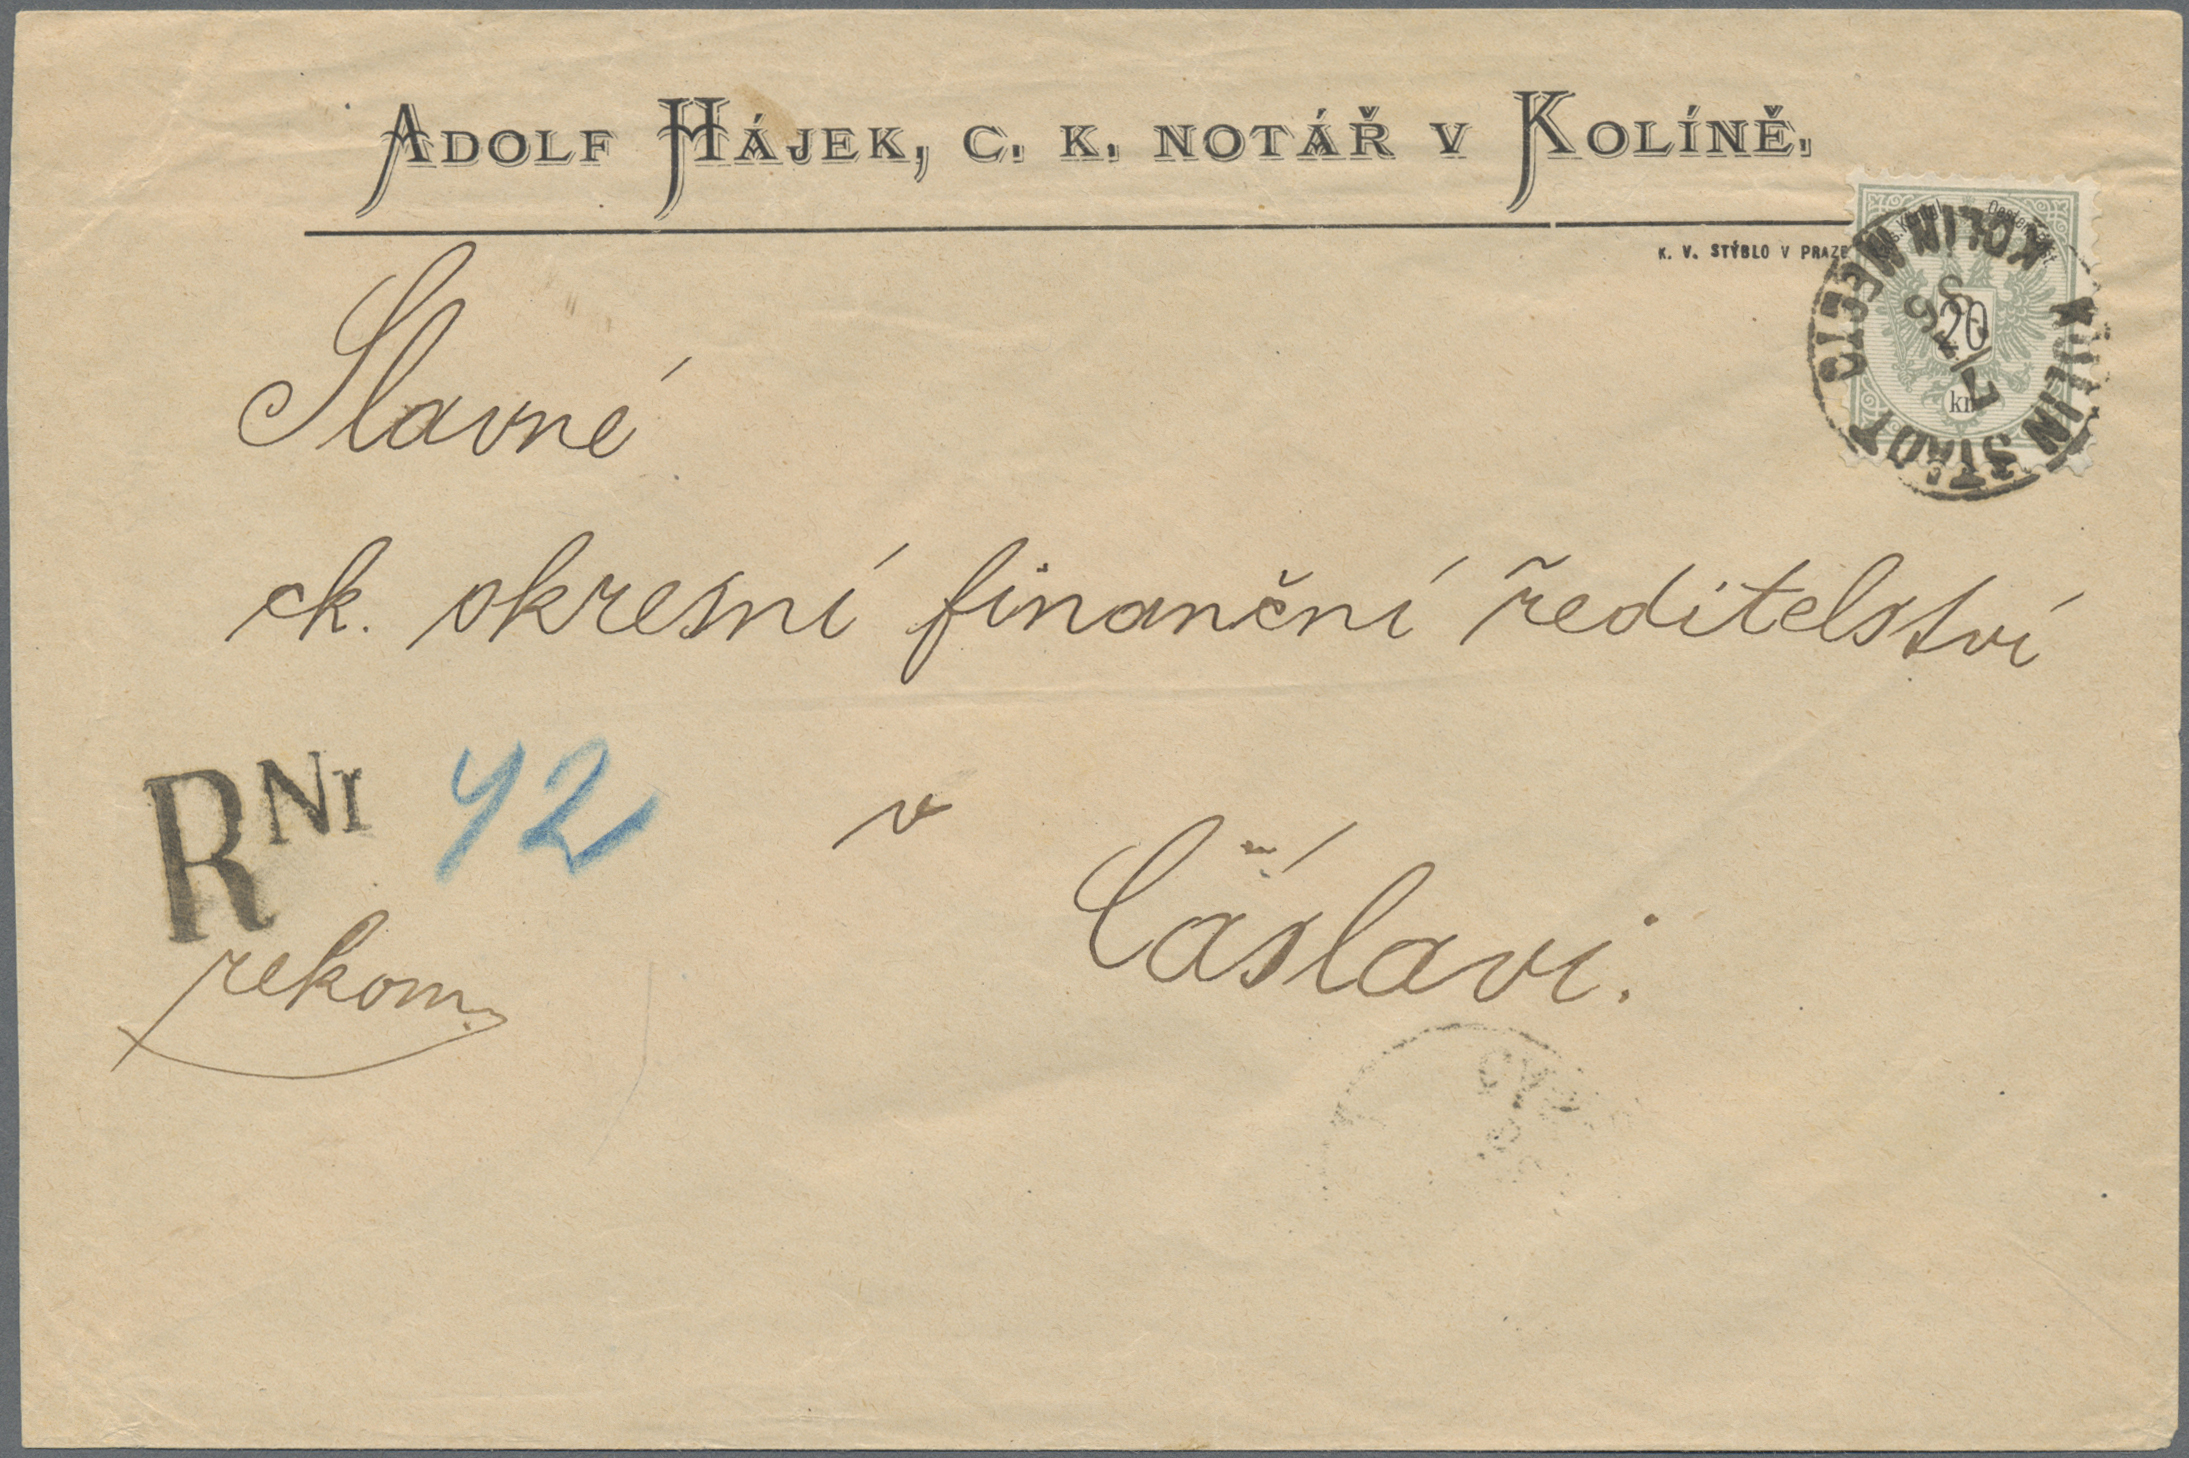 ADOLF HÁJEK, C. K. NOTÁŘ V KOLÍNĚ.
K. V. STÝBLO V PRAZE
20
kr
KOLIN MĚSTO
KOLIN STADT
Slavné
ck. okresní finanční ředitelství
RNr 42
v
Čáslavi.
rekom.